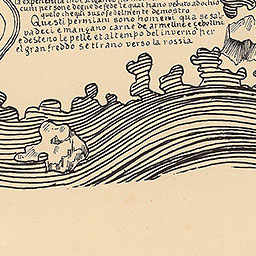 la experientia
cuni persone degne de fede le quali hano veduto ad ochio
quelo che qui suso fedelmente demostro
Questi permiani sono homeni qua se sal
vadeci e mangano carne de armelline e gebolini
e desteno le pelle et al tempo del inverno per
el gran freddo se tirano verso la rossia